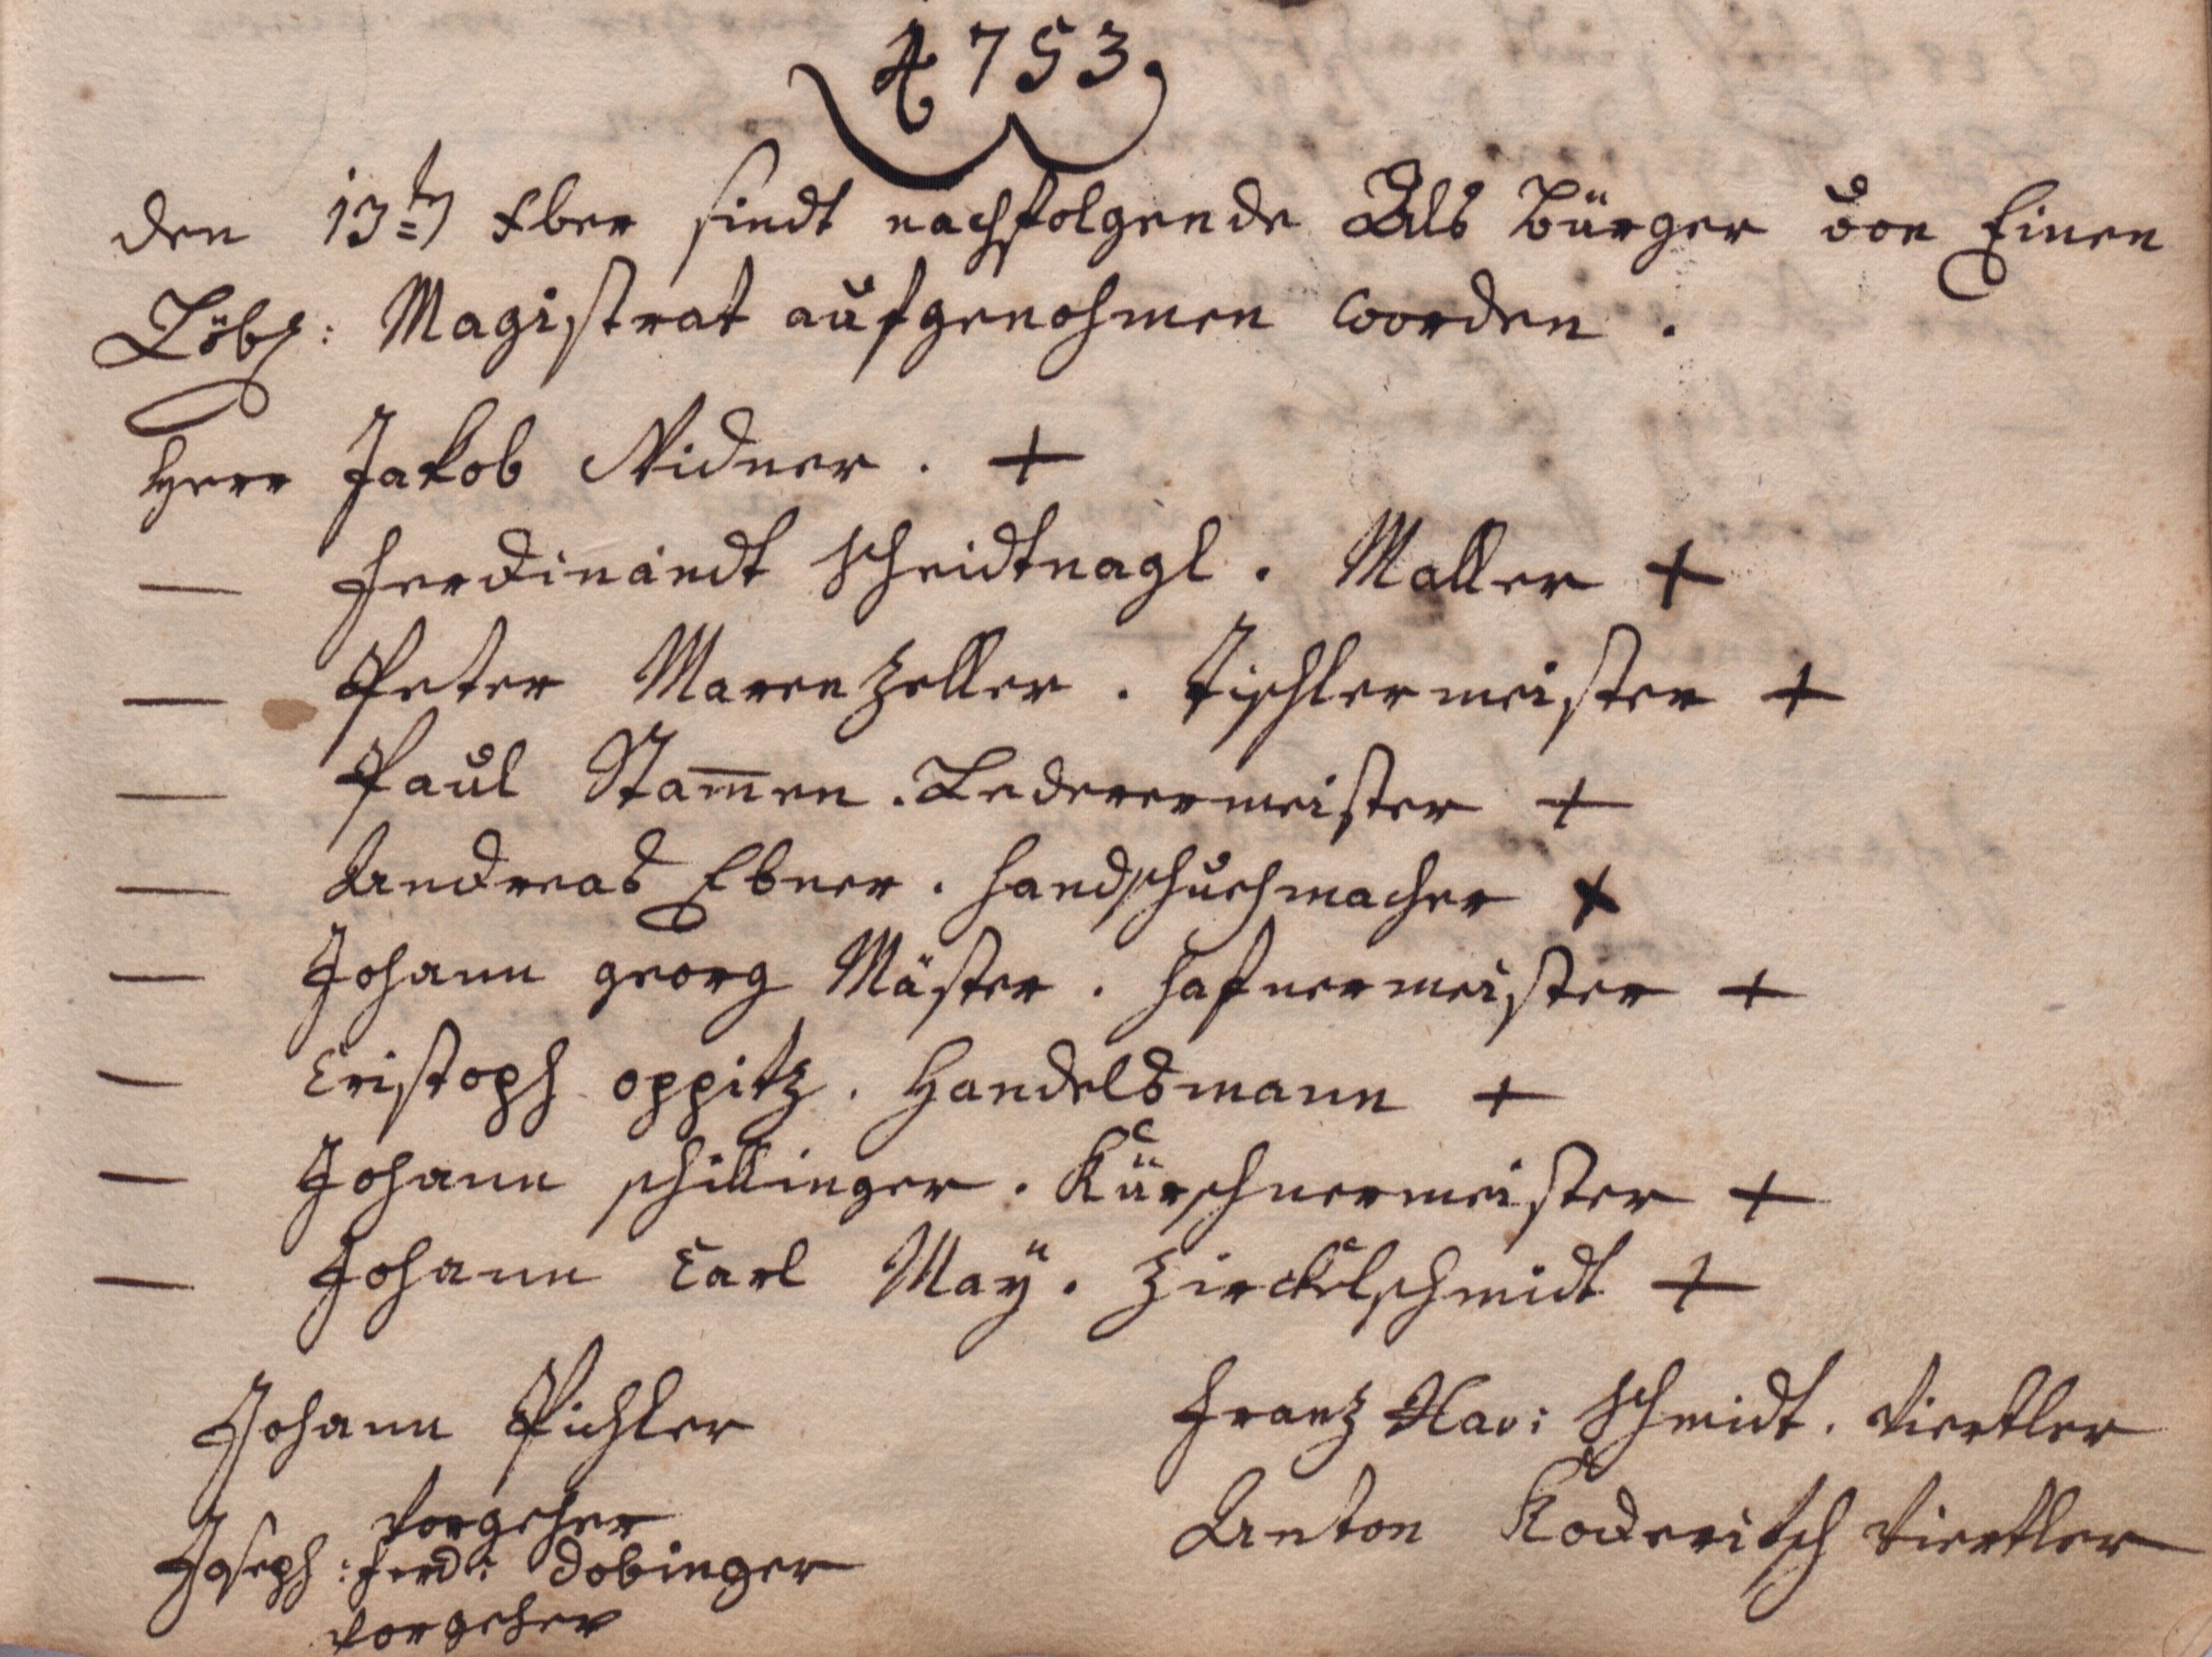 1753
den 13ten Xber sindt nachfolgende Als Bürger von Einen
Löbl: Magistrat aufgenohmen worden.
Herr Jakob Widner. +
— Ferdinandt Scheidtnagl. Maller +
— Peter Marenzeller. Tischlermeister +
— Paul Stam̄en. Lederermeister +
— Andreas Ebner. Handschuchmacher +
— Johann georg Mäster. Hafnermeister +
— Cristoph oppitz. Handelsmann +
— Johann schillinger. Kürschnermeister +
— Johann Carl Maÿ. Zirckelschmidt +
Johann Pichler
Vorgeher
Joseph: Ferd: Dobinger
Vorgeher
Franz Xav: Schmidt. Viertler
Anton Koderitsch Viertler